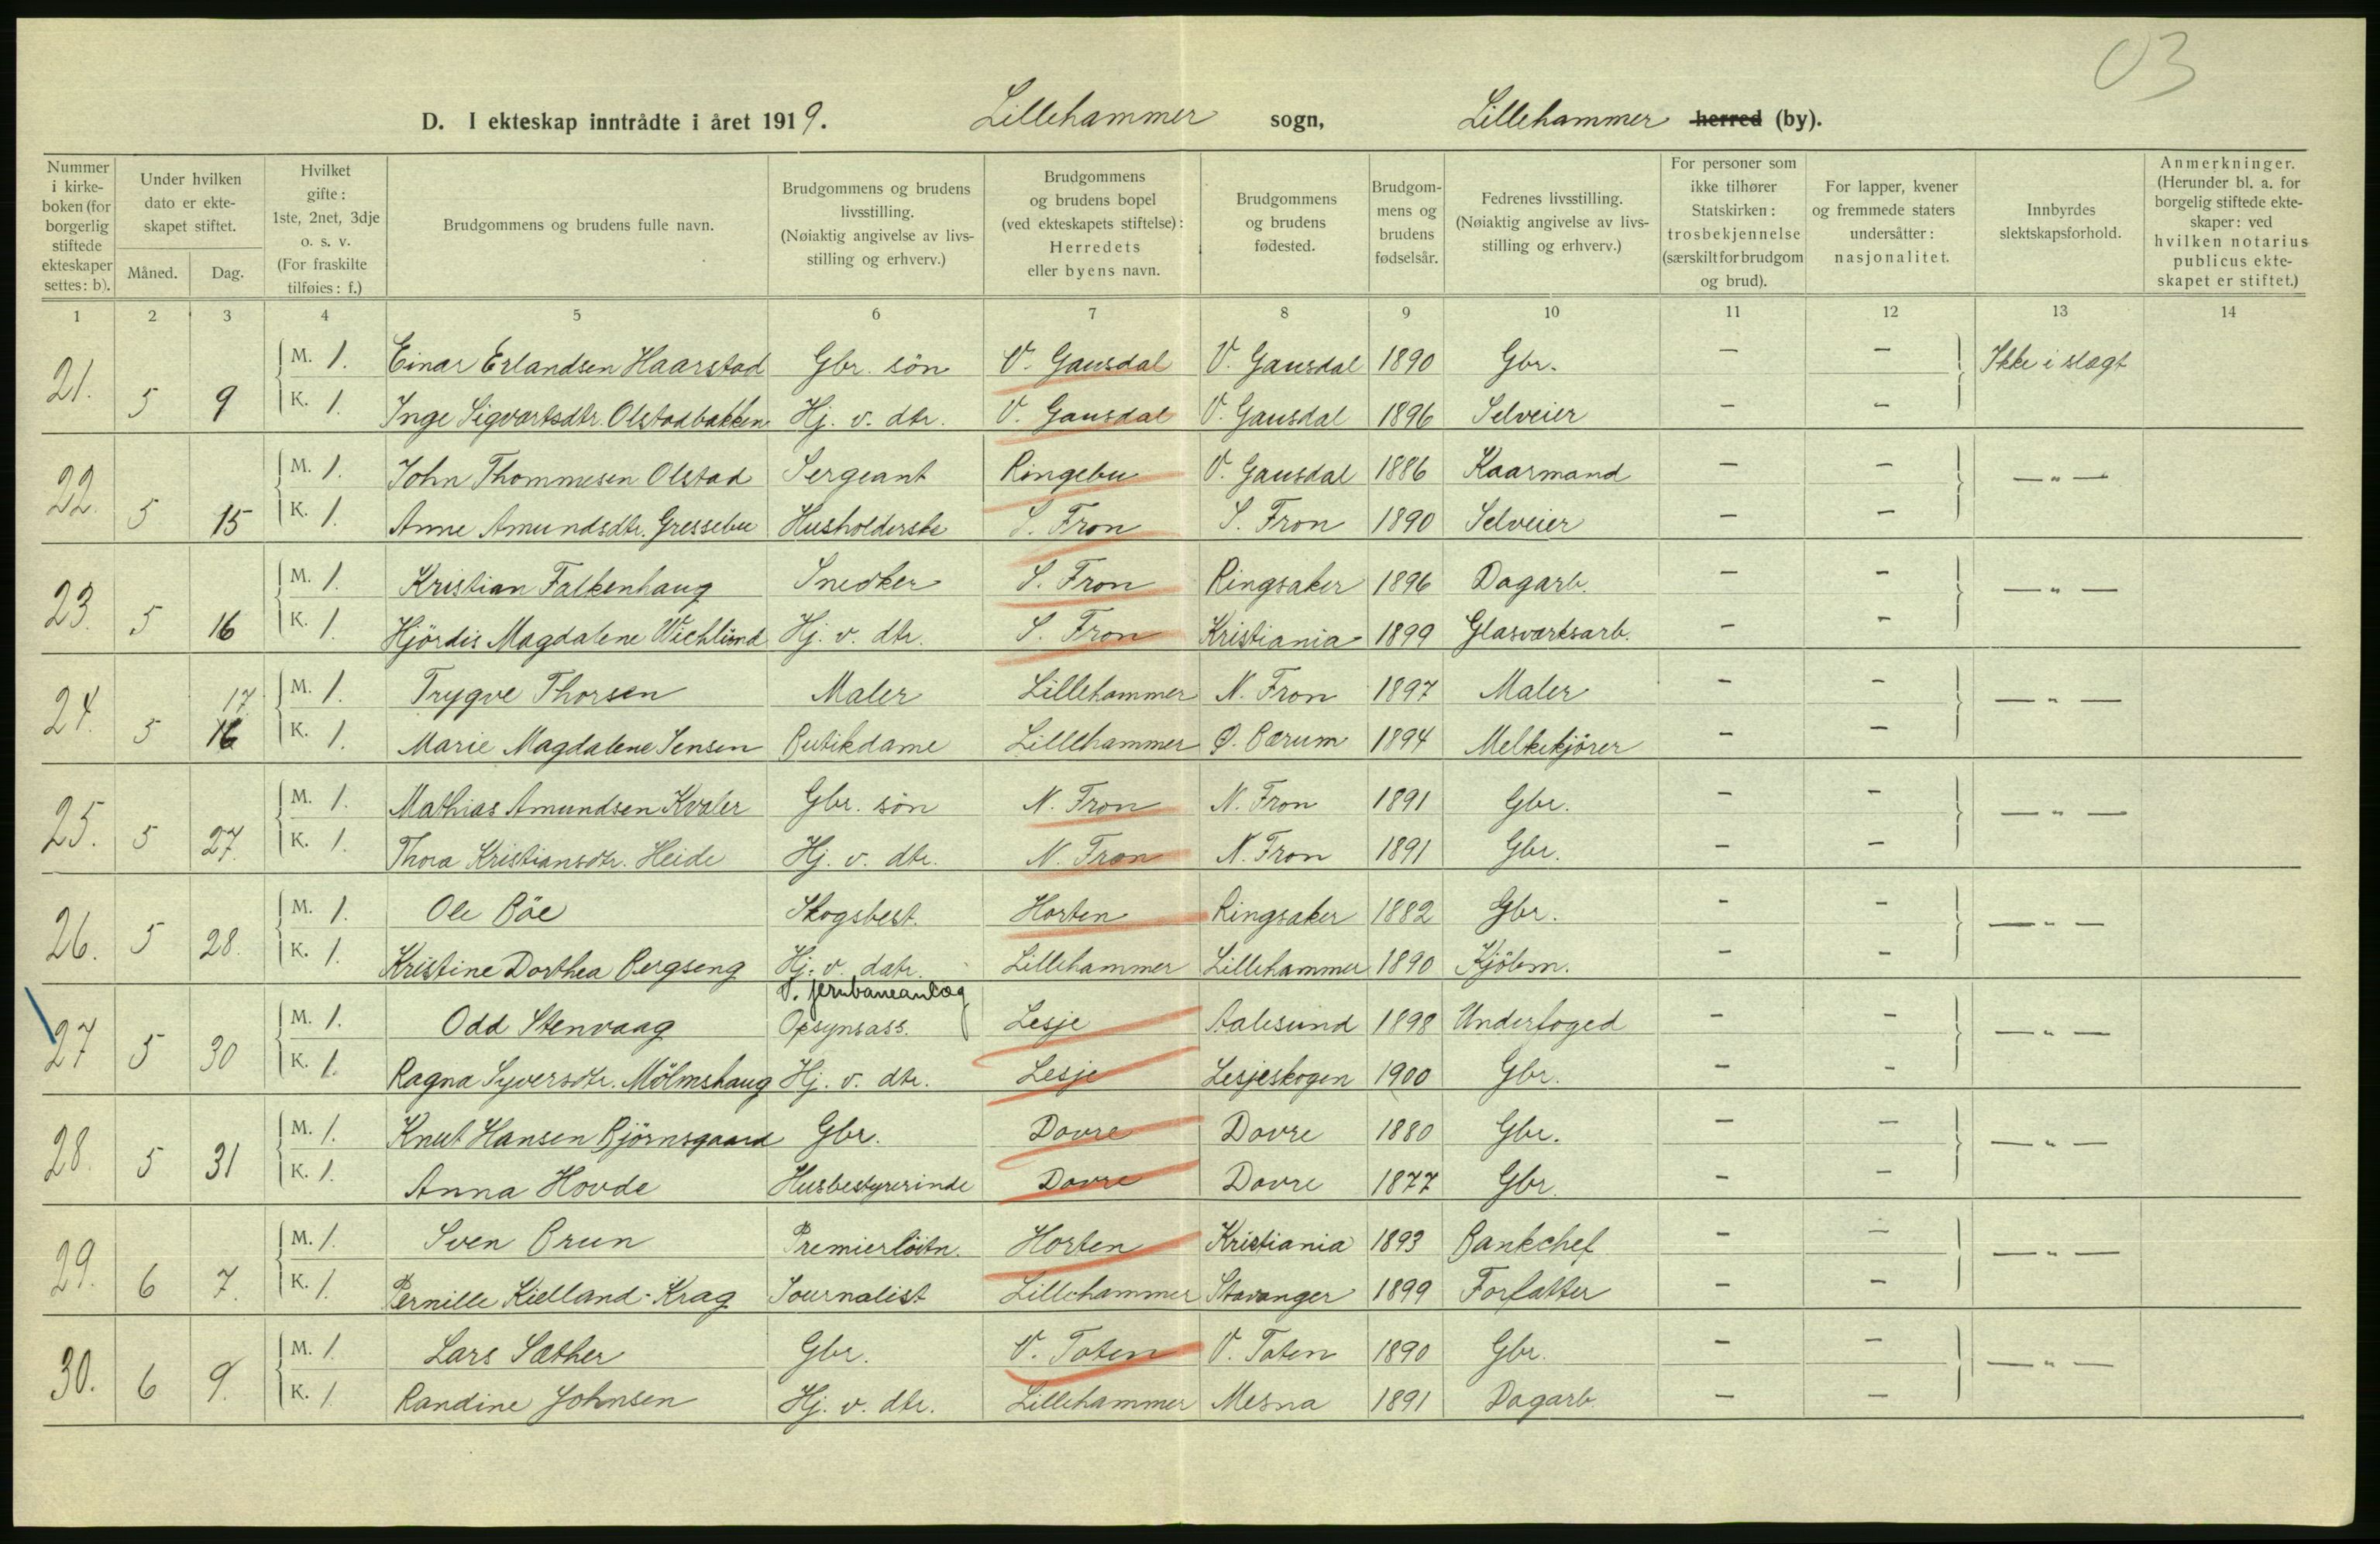 03
D. I ekteskap inntrådte i året 1919. Lillehammer sogn, Lillehammer herred (by).
Nummer i kirke-boken (for borgerlig stiftede ekteskaper settes: b). | Under hvilken dato er ekte-skapet stiftet. Måned. Dag. | Hvilket gifte: 1ste, 2net, 3dje o. s. v. (For fraskilte tilføies: f.) | Brudgommens og brudens fulle navn. | Brudgommens og brudens livsstilling. (Nøiaktig angivelse av livs-stilling og erhverv.) | Brudgommens og brudens bopel (ved ekteskapets stiftelse): Herredets eller byens navn. | Brudgommens og brudens fødested. | Brudgom-mens og brudens fødselsår. | Fedrenes livsstilling. (Nøiaktig angivelse av livs-stilling og erhverv.) | For personer som ikke tilhører Statskirken: trosbekjennelse (særskilt for brudgom og brud). | For lapper, kvener og fremmede staters undersåtter: nasjonalitet. | Innbyrdes slektskapsforhold. | Anmerkninger. (Herunder bl. a. for borgelig stiftede ekte-skaper: ved hvilken notarius publicus ekte-skapet er stiftet.)
1 2 3 4 5 6 7 8 9 10 11 12 13 14
M. 1. Einar Erlandsen Haarstad Gbr. søn V. Gausdal V. Gausdal 1890 Gbr. — — Ikke i slægt
21. 5 9 K. 1. Inge Sigvartsdtr. Olstadbakken Hj. v. dtr. V. Gausdal V. Gausdal 1896 Selveier — —
M. 1. John Thommesen Olstad Sergeant Ringebu V. Gausdal 1886 Kaarmand — — — " —
22. 5 15 K. 1. Anne Amundsdtr. Gressebu Husholderske S. Fron S. Fron 1890 Selveier — —
M. 1. Kristian Falkenhaug Snedker S. Fron Ringsaker 1896 Dagarb. — — — " —
23. 5 16 K. 1. Hjördis Magdalene Wichlund Hj. v. dtr. S. Fron Kristiania 1899 Glasværksarb. — —
17. M. 1. Trygve Thorsen Maler Lillehammer N. Fron 1897 Maler — — — " —
24. 5 16 K. 1. Marie Magdalene Jensen Butikdame Lillehammer Ø. Bærum 1894 Melkekjörer — —
M. 1. Mathias Amundsen Kvaler Gbr. søn N. Fron N. Fron 1891 Gbr. — — — " —
25. 5 27. K. 1. Thora Kristiansdtr. Heide Hj. v. dtr. N. Fron N. Fron 1891 Gbr. — —
M. 1. Ole Böe Skogsbest. Horten Ringsaker 1882 Gbr. — — — " —
26. 5 28. K. 1. Kristine Dorthea Bergseng Hj. v. datr. Lillehammer Lillehammer 1890 Kjöbm. — —
v. jernbaneanlæg
M. 1. Odd Stenvaag Opsynsass. Lesje Aalesund 1898 Underfoged — — — " —
27 5 30 K. 1. Ragna Syversdtr. Mölmshaug Hj. v. dtr. Lesje Lesjeskogen 1900 Gbr. — —
M. 1. Knut Hansen Björnsgaard Gbr. Dovre Dovre 1880 Gbr. — — — " —
28. 5 31 K. 1. Anna Hovde Husbestyrerinde Dovre Dovre 1877 Gbr. — —
M. 1. Sven Brun Premierlöitn. Horten Kristiania 1893 Bankchef — — — " —
29. 6 7. K. 1. Pernille Kielland-Krag Journalist Lillehammer Stavanger 1899 Forfatter — —
M. 1. Lars Sæther Gbr. V. Toten V. Toten 1890 Gbr. — — — " —
30. 6 9. K. 1 Randine Johnsen Hj. v. dtr. Lillehammer Mesna 1891 Dagarb — —